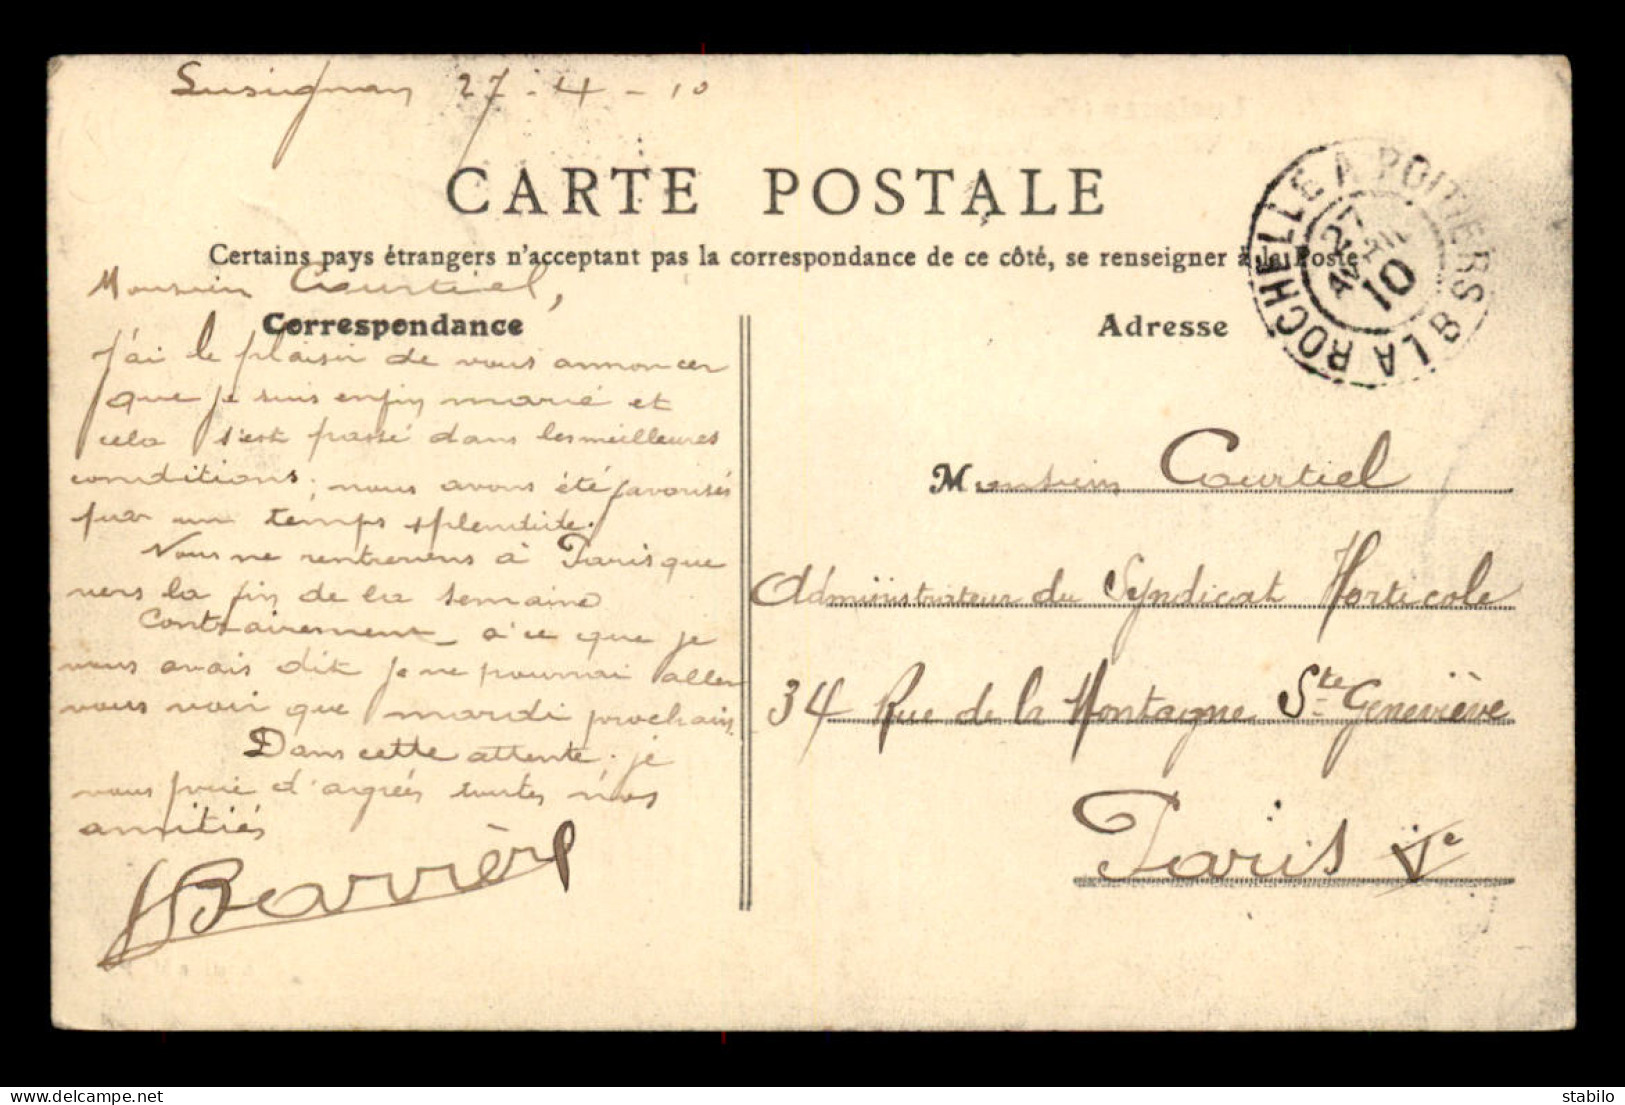 Lusignan 27-4-10
CARTE POSTALE
Certains pays étrangers n'acceptant pas la correspondance de ce côté, se renseigner à la Poste
LA ROCHELLE A POITIERS
27
AVRIL
10
LB
Monsieur Courtiel,
Correspondance
J'ai le plaisir de vous annoncer
que je suis enfin marié et
cela s'est passé dans les meilleures
conditions; nous avons été favorisés
par un temps splendide.
Nous ne rentrerons à Paris que
vers la fin de la semaine
Contrairement à ce que je
vous avais dit je ne pourrai aller
vous voir que mardi prochain.
Dans cette attente, je
vous prie d'agréer toutes nos
amitiés
Barrière
Adresse
Monsieur Courtiel
Administrateur du Syndicat Horticole
34 Rue de la Montagne Ste Geneviève
Paris Ve
delcampe.net
sibalo